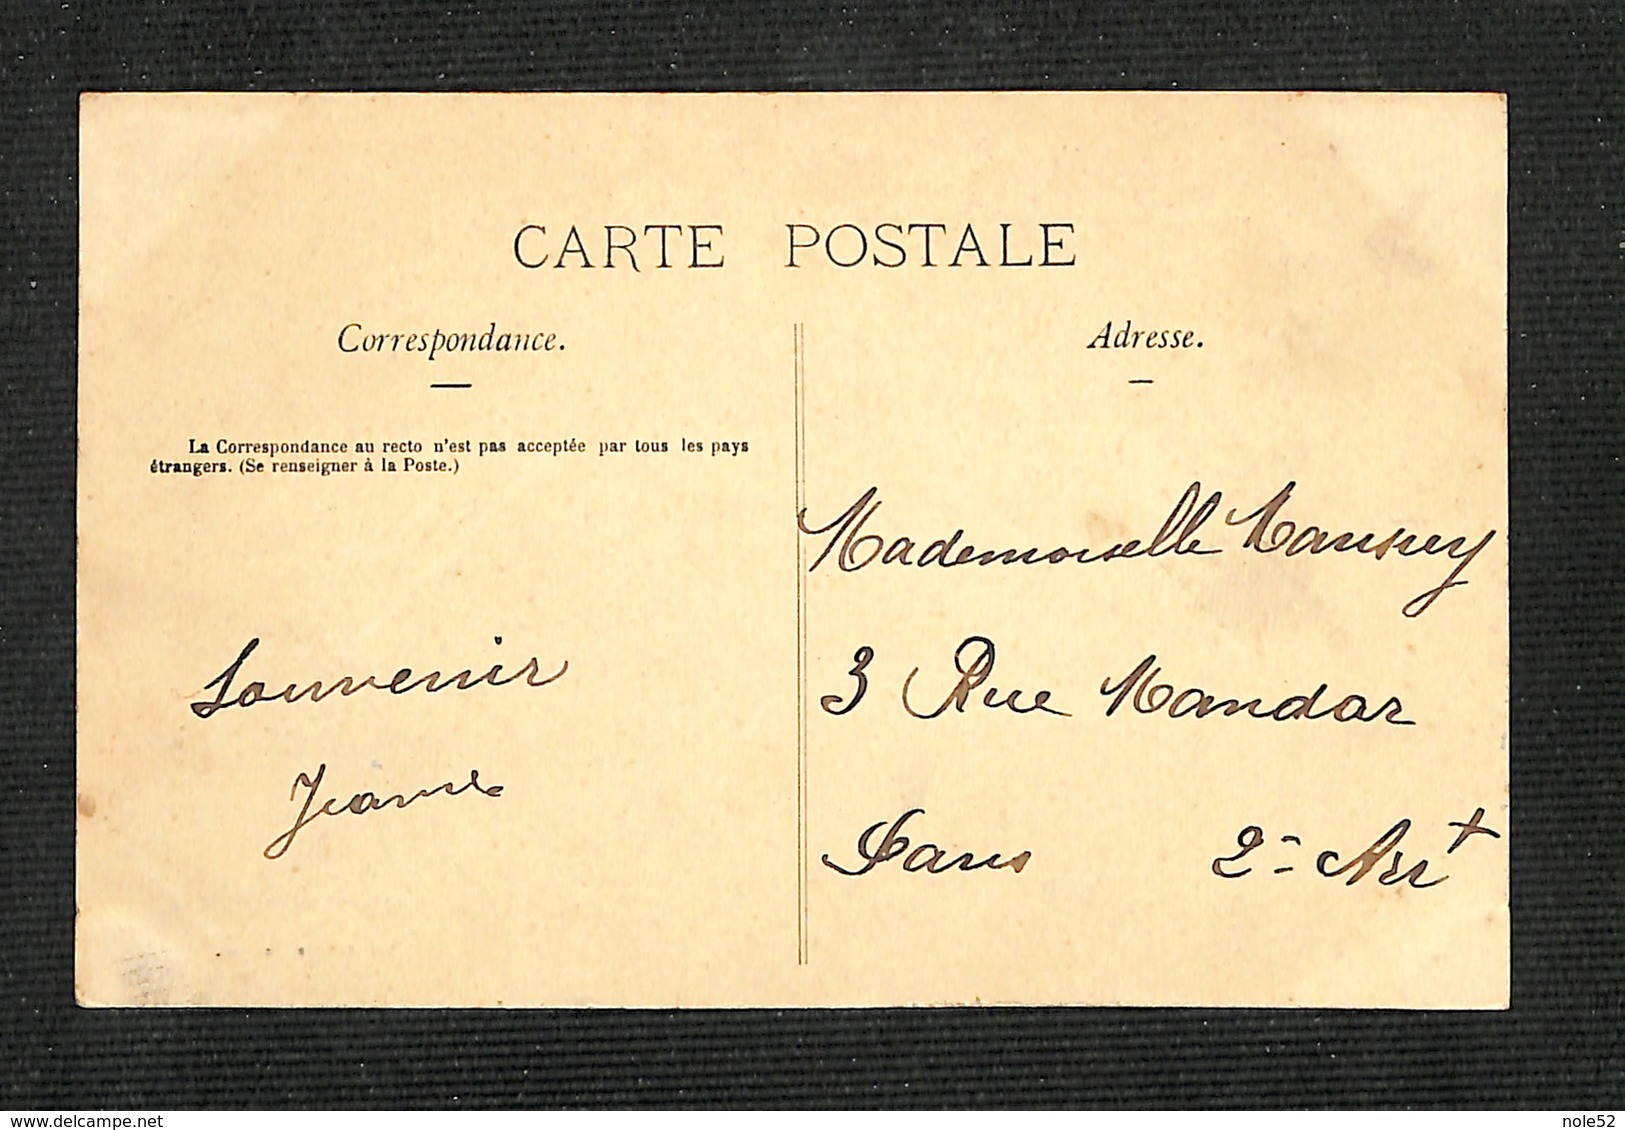 CARTE POSTALE
Correspondance.
La Correspondance au recto n'est pas acceptée par tous les pays
étrangers. (Se renseigner à la Poste.)
Souvenir
Jeanne
Adresse.
Mademoiselle
3 Rue Mandar
Paris 2e Arrt
delcampe.net
nole52